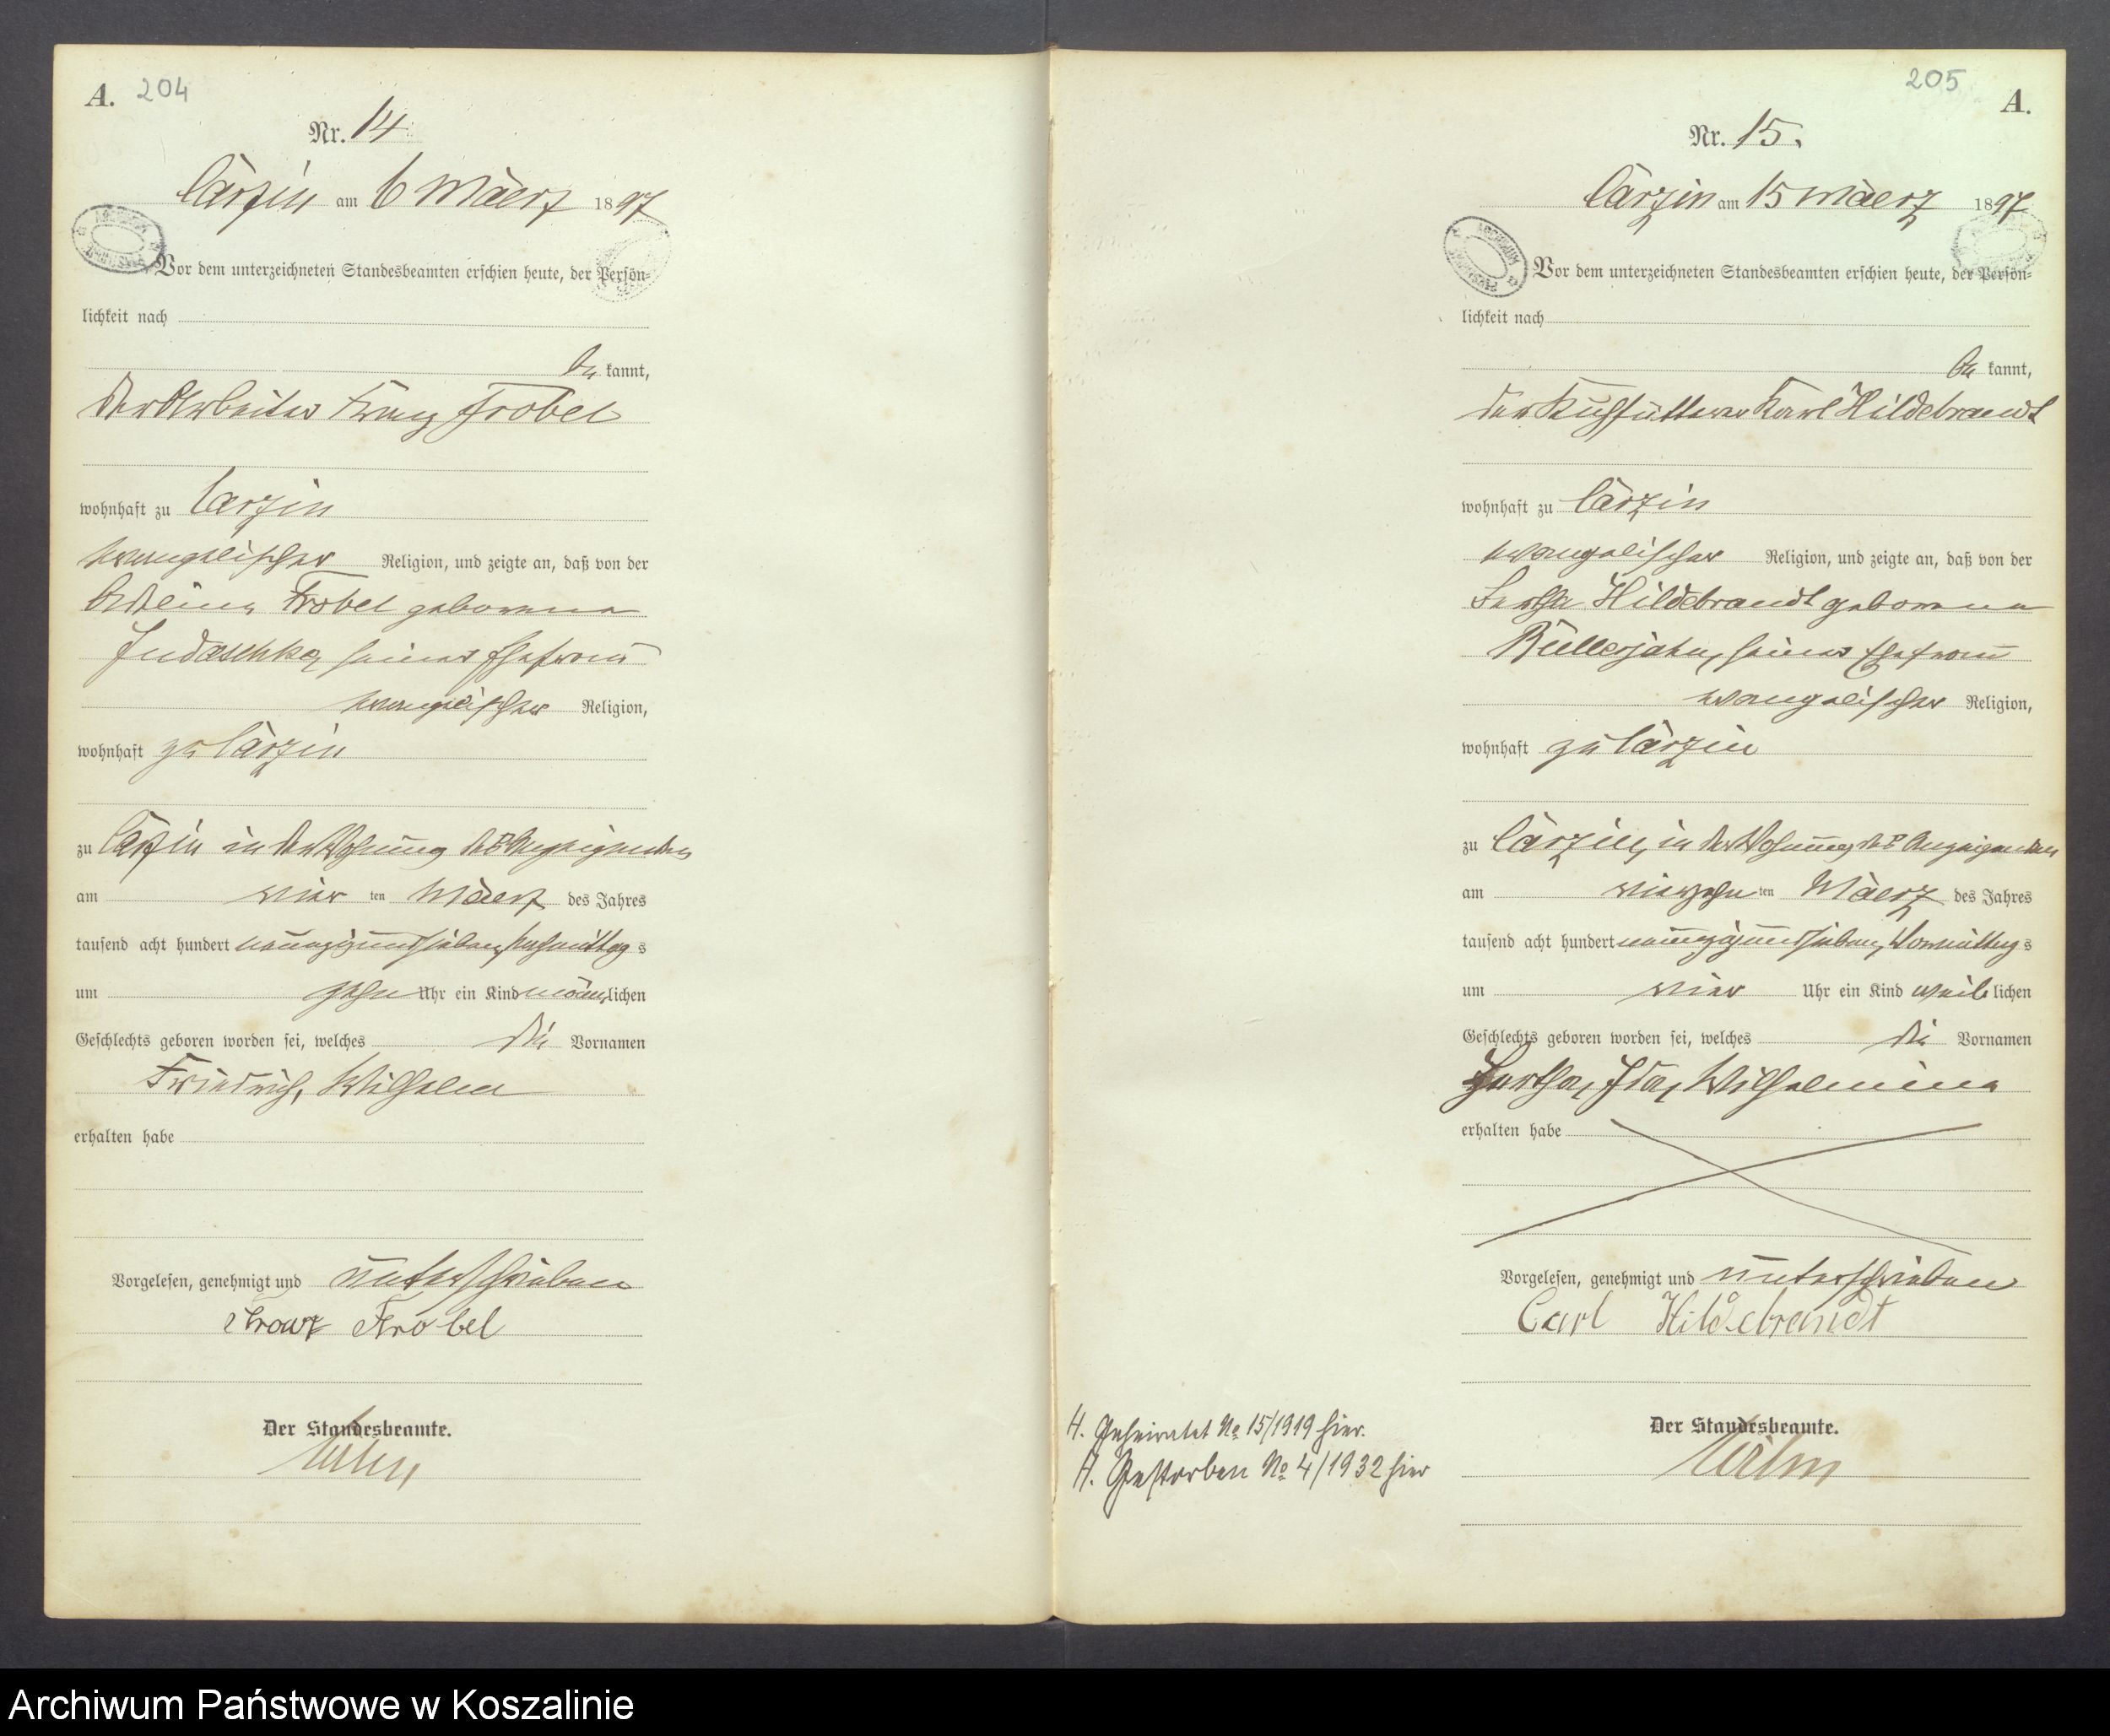 A. 204
Nr. 14
Carzin am 6 Maerz 1897
Vor dem unterzeichneten Standesbeamten erschien heute, der Persön-
lichkeit nach
be kannt,
der Arbeiter Franz Frobel
wohnhaft zu Carzin
evangelischer Religion, und zeigte an, daß von der
Frobel geborene
Judaschke, seiner Ehefrau
evangelischer Religion,
wohnhaft zu Carzin
zu Carzin in der Wohnung des Anzeigenden
am vier ten Maerz des Jahres
tausend acht hundert neunzig und sieben, Nachmittag s
um zehn Uhr ein Kind männlichen
Geschlechts geboren worden sei, welches die Vornamen
Friedrich, Wilhelm
erhalten habe
Vorgelesen, genehmigt und unterschrieben
Franz Frobel
Der Standesbeamte.
Wilm
205 A.
Nr. 15.
Carzin am 15 Maerz 1897
Vor dem unterzeichneten Standesbeamten erschien heute, der Persön-
lichkeit nach
be kannt,
der Kuhfütterer Karl Hildebrandt
wohnhaft zu Carzin
evangelischer Religion, und zeigte an, daß von der
Hildebrandt geborene
Büllerjahn, seiner Ehefrau
evangelischer Religion,
wohnhaft zu Carzin
zu Carzin, in der Wohnung des Anzeigenden
am vierzehn ten Maerz des Jahres
tausend acht hundert neunzig und sieben, Vormittag s
um vier Uhr ein Kind weib lichen
Geschlechts geboren worden sei, welches die Vornamen
Hertha, Ida, Wilhelmine
erhalten habe
Vorgelesen, genehmigt und unterschrieben
Carl Hildebrandt
H. Geheiratet No 15/1919 hier.
H. Gestorben No 4/1932 hier
Der Standesbeamte.
Wilm
Archiwum Państwowe w Koszalinie